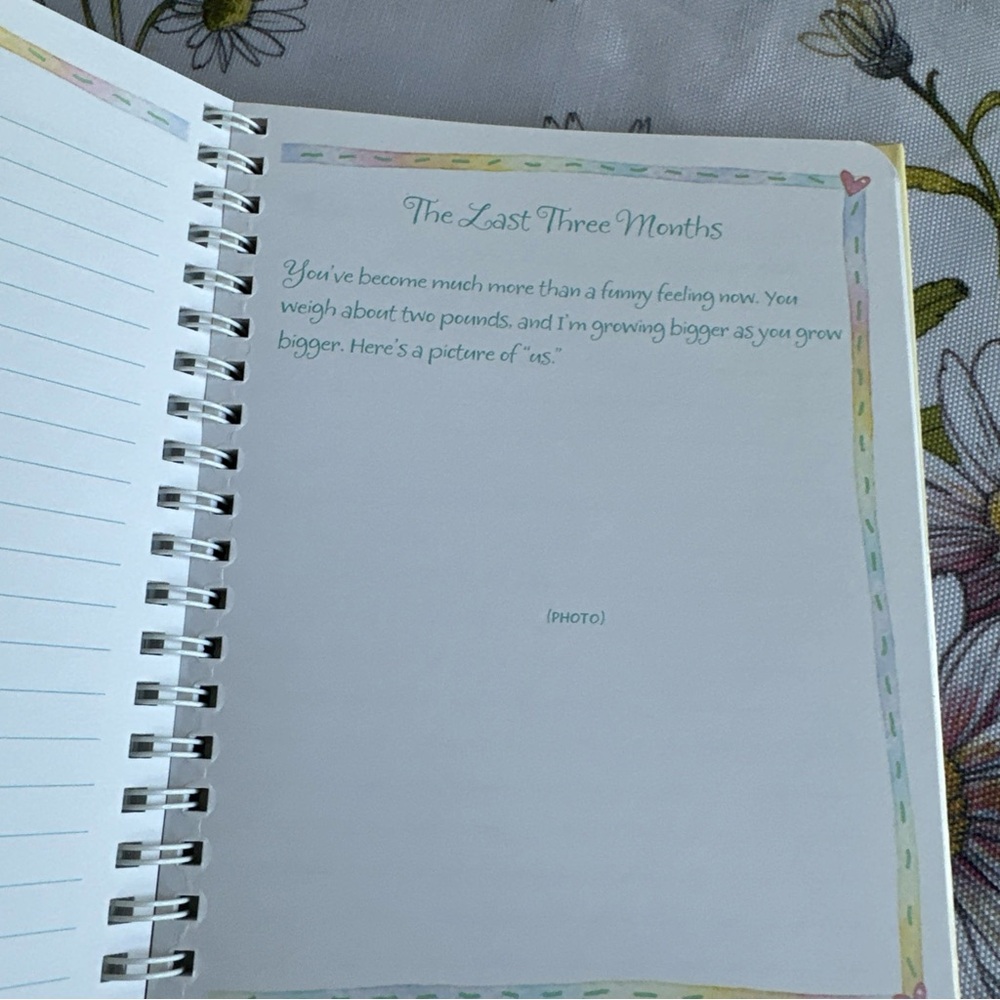 The Last Three Months
You've become much more than a funny feeling now. You
weigh about two pounds, and I'm growing bigger as you grow
bigger. Here's a picture of "us."
(PHOTO)